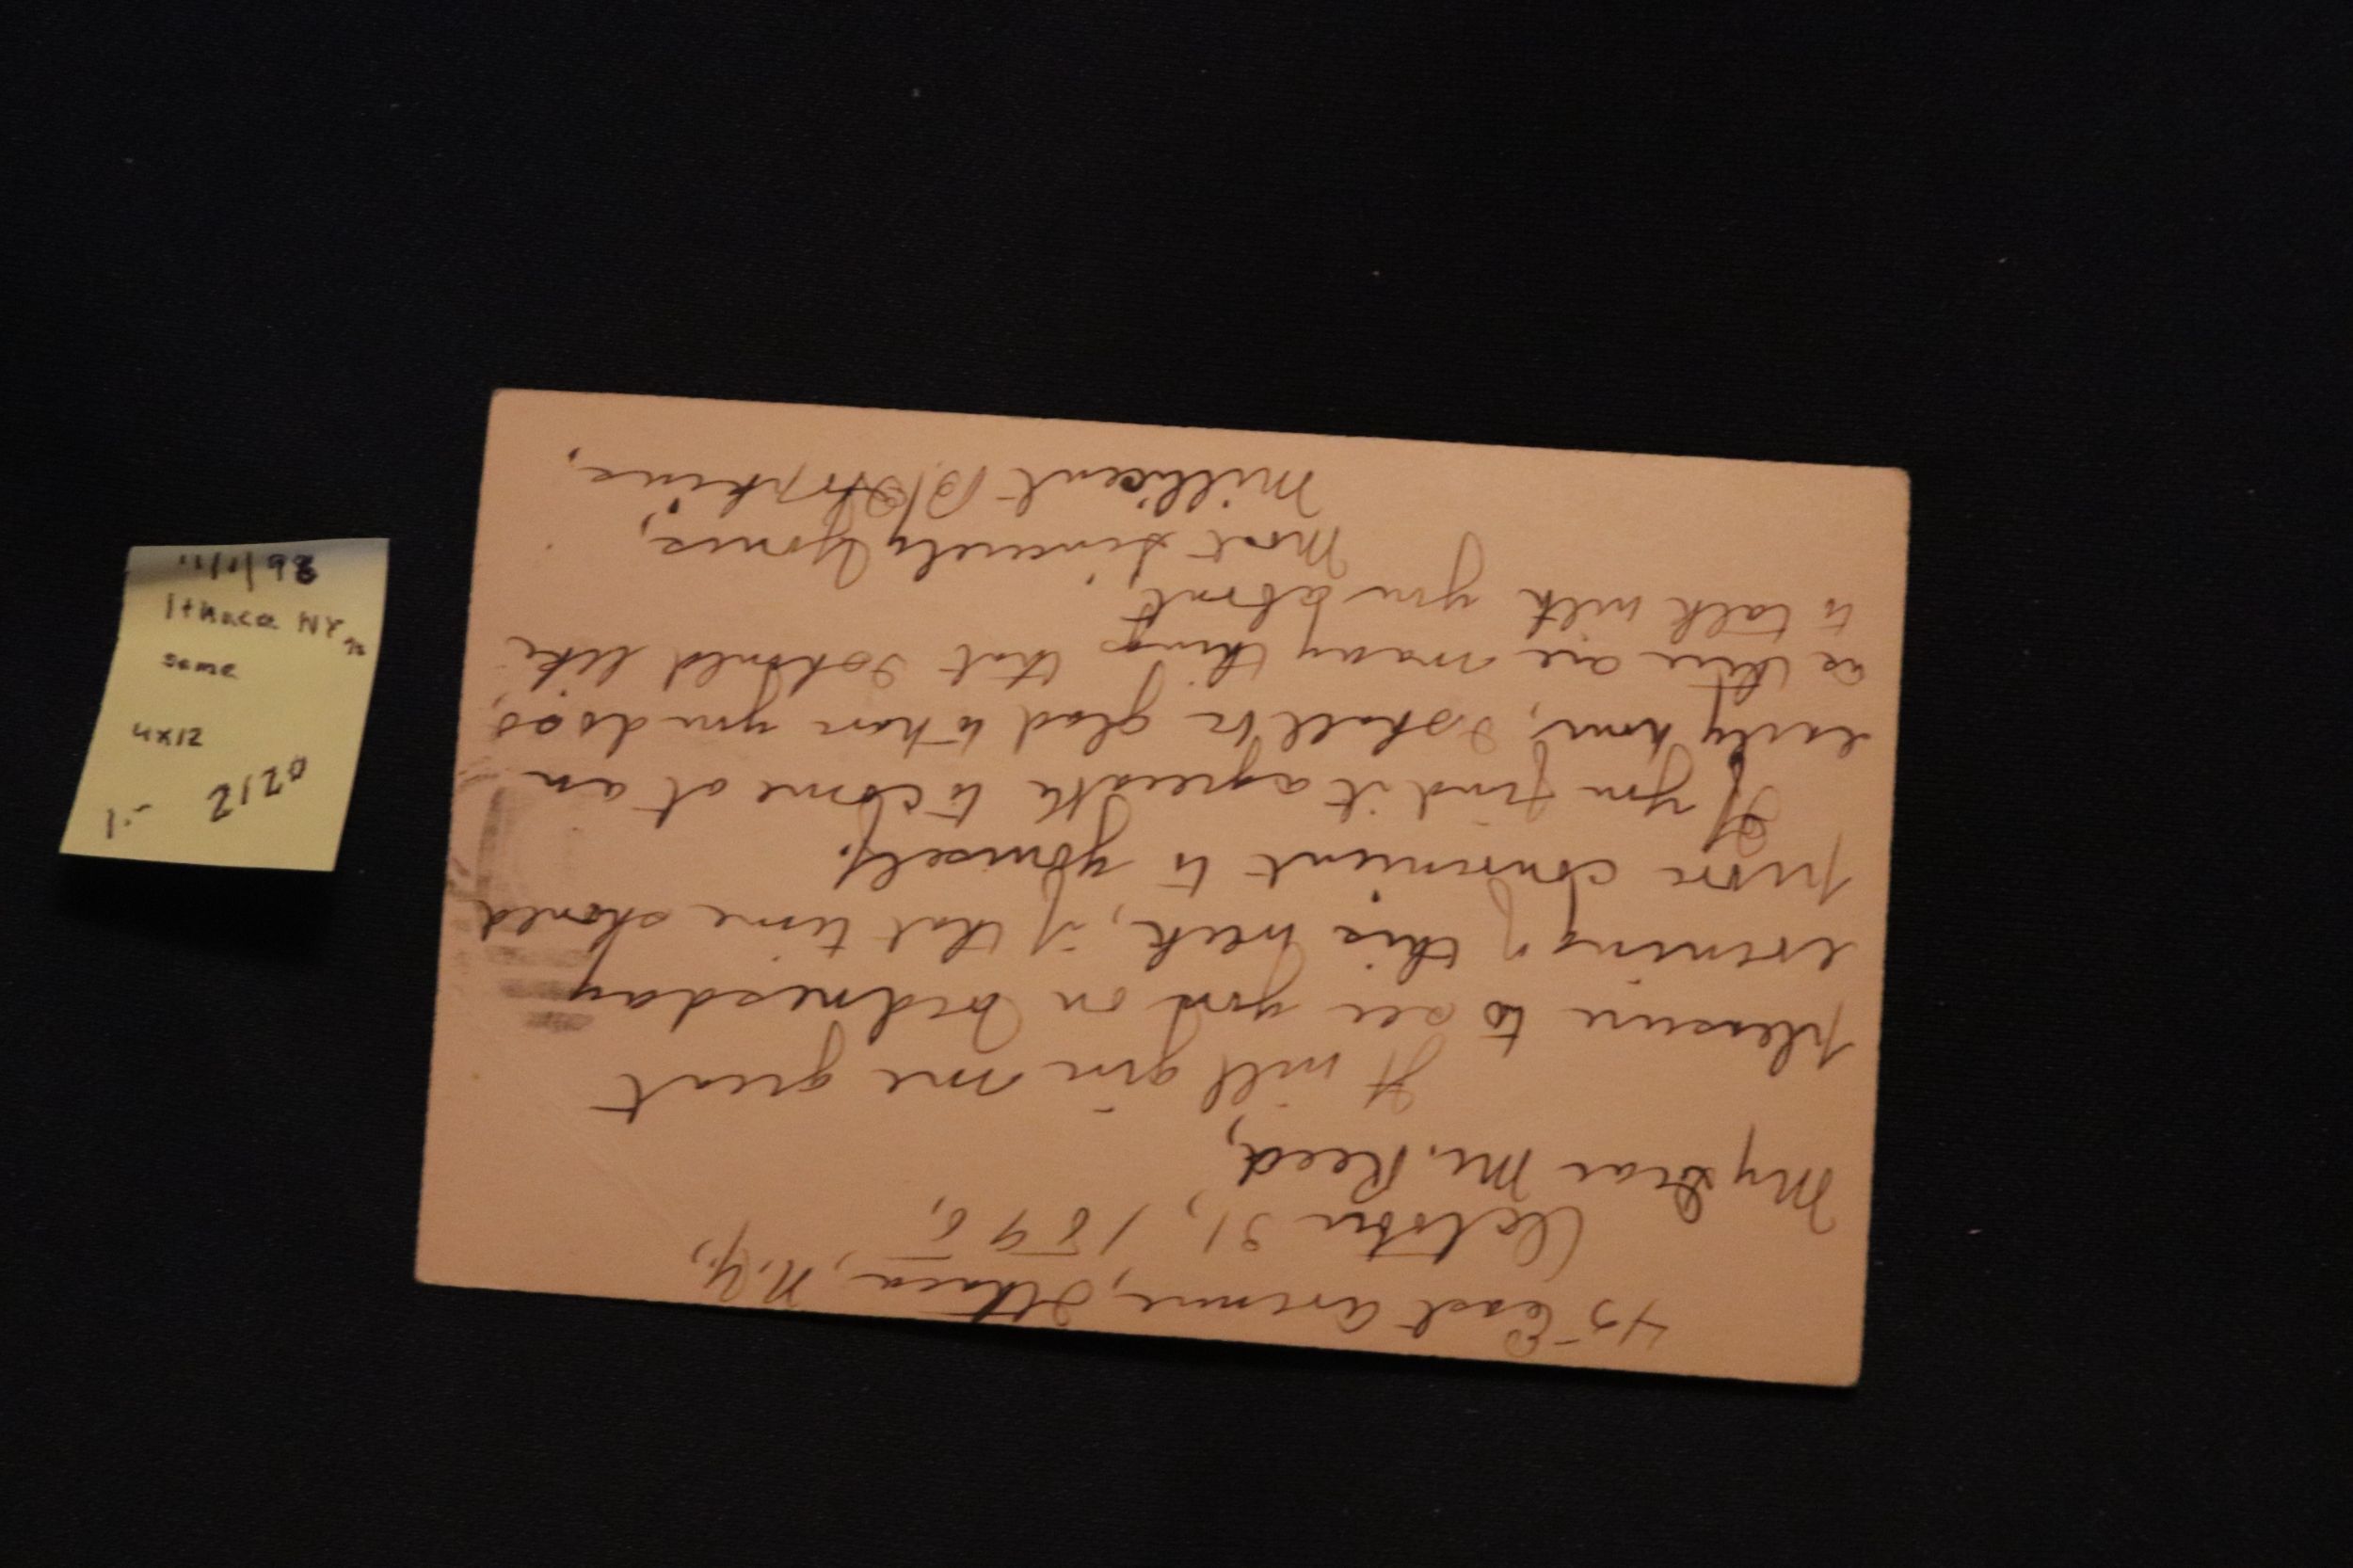 45 East Avenue, Ithaca, N.Y.,
October 31, 1898,
My Dear Mr. Reed,
It will give me great
pleasure to see you on Wednesday
evening of this week, if that time should
prove convenient to yourself.
If you find it agreeable to come at an
early hour, I shall be glad to have you do so,
as there are many things that I should like
to talk with you about,
Most sincerely yours,
Millicent Hopkins,
11/1/98
Ithaca NY
same
4x12
1.-
2120